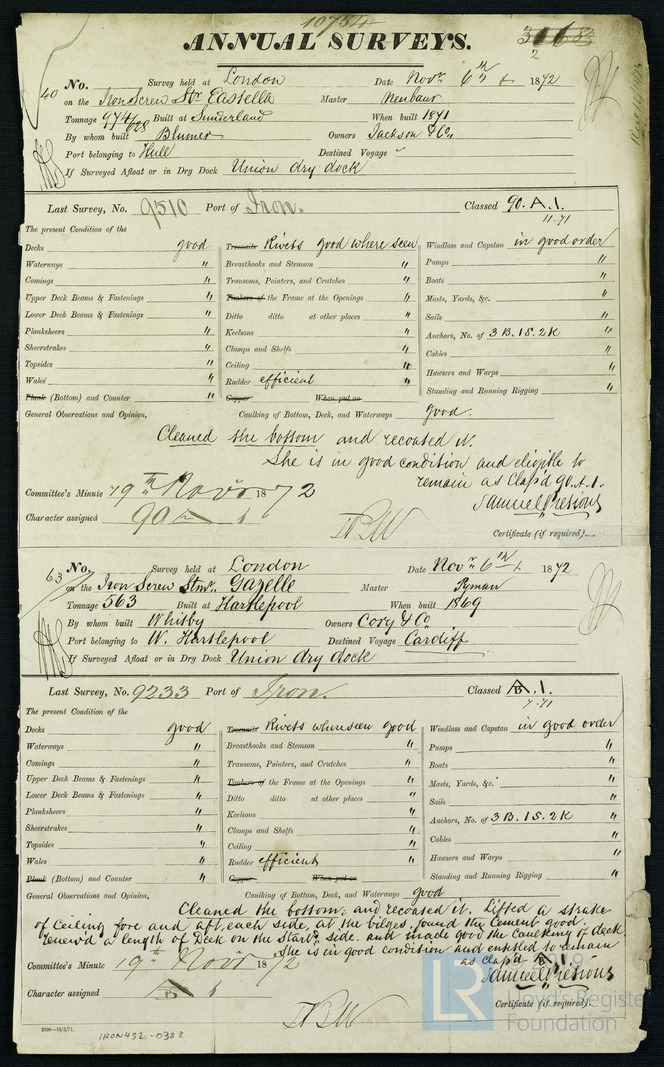 10754
ANNUAL SURVEYS.
3168
2
40
No. Survey held at London Date Novr. 6th 1872
on the Iron Screw Str Eastella Master Neubaur
Tonnage 974/628 Built at Sunderland When built 1871
By whom built Blumer Owners Jackson & Co
Port belonging to Hull Destined Voyage
If Surveyed Afloat or in Dry Dock Union dry dock
Last Survey, No. 9510 Port of Iron. Classed 90.A.1.
11-71
The present Condition of the
Decks good Treenails Rivets good where seen Windlass and Capstan in good order
Waterways " Breasthooks and Stemson " Pumps "
Comings " Transoms, Pointers, and Crutches " Boats "
Upper Deck Beams & Fastenings " Timbers of the Frame at the Openings " Masts, Yards, &c. "
Lower Deck Beams & Fastenings " Ditto ditto at other places " Sails "
Planksheers " Keelsons " Anchors, No. of 3 B. 1S. 2K "
Sheerstrakes " Clamps and Shelfs " Cables "
Topsides " Ceiling " Hawsers and Warps "
Wales " Rudder efficient " Standing and Running Rigging "
Plank (Bottom) and Counter " Copper When put on
General Observations and Opinion, Caulking of Bottom, Deck, and Waterways good.
Cleaned the bottom and recoated it.
She is in good condition and eligible to
remain as Class'd 90.A.1.
Committee's Minute 19th Novr 1872
Character assigned 90
Certificate (if required)
63
No. Survey held at London Date Novr 6th 1872
on the Iron Screw Stmr. Gazelle Master Pyman
Tonnage 563 Built at Hartlepool When built 1869
By whom built Whitby Owners Cory & Co
Port belonging to W. Hartlepool Destined Voyage Cardiff
If Surveyed Afloat or in Dry Dock Union dry dock
Last Survey, No. 9233 Port of Iron. Classed A.1.
B
7-71
The present Condition of the
Decks good Treenails Rivets where seen good Windlass and Capstan in good order
Waterways " Breasthooks and Stemson " Pumps "
Comings " Transoms, Pointers, and Crutches " Boats "
Upper Deck Beams & Fastenings " Timbers of the Frame at the Openings " Masts, Yards, &c. "
Lower Deck Beams & Fastenings " Ditto ditto at other places " Sails "
Planksheers " Keelsons " Anchors, No. of 3 B. 1S. 2K "
Sheerstrakes " Clamps and Shelfs " Cables "
Topsides " Ceiling " Hawsers and Warps "
Wales " Rudder efficient " Standing and Running Rigging "
Plank (Bottom) and Counter " Copper When put on
General Observations and Opinion, Caulking of Bottom, Deck, and Waterways good
Cleaned the bottom, and recoated it. Lifted a strake
of Ceiling fore and aft, each side, at the bilges, found the Cement good.
renew'd a length of Deck on the Starbd side. and made good the caulking of deck.
She is in good condition and entitled to remain
as class'd A.1.
B
Committee's Minute 19th Novr 1872
Character assigned
Certificate (if required).
2000—13/2/71.
IRON492-0382
LR
2019
Lloyd's Register
Foundation